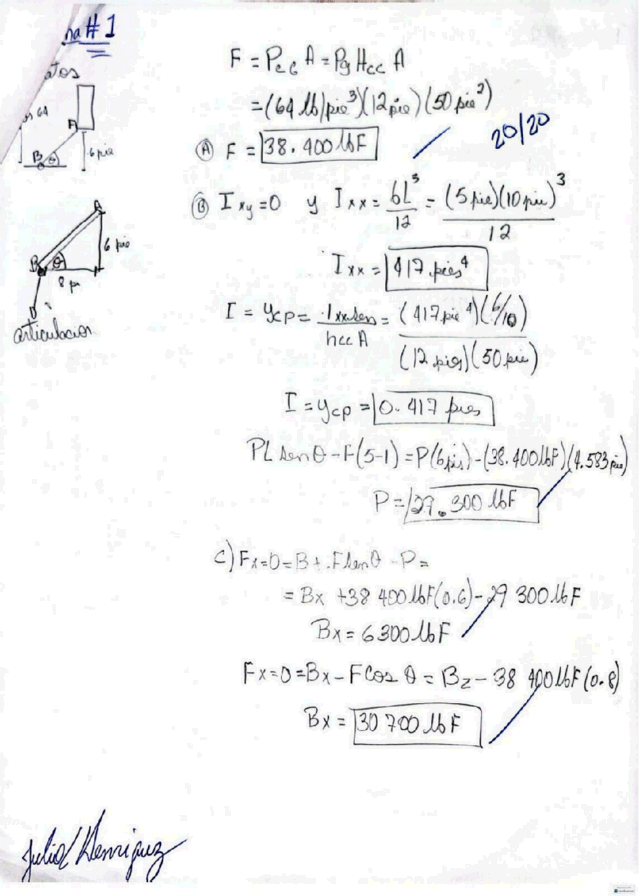 na # 1
atos
64
A
B θ
6 pie
A
B θ
6 pie
8 pi
articulacion
F = PCG A = Pg HCC A
= (64 lb/pie³)(12 pie)(50 pie²)
20/20
(A) F = 38.400 lbF
(B) Ixy = 0 y Ixx = bL³/12 = (5 pie)(10 pie)³/12
Ixx = 417 pies⁴
I = ycp = Ixx sen/hcc A = (417 pie⁴)(6/10)/(12 pies)(50 pie)
I = ycp = 0.417 pies
PL senθ - F(5-1) = P(6 pis) - (38.400 lbF)(4.583 pie)
P = 29.300 lbF
C) Fx = 0 = B + F senθ - P =
= Bx + 38 400 lbF(0.6) - 29 300 lbF
Bx = 6300 lbF
Fx = 0 = Bx - F Cos θ = Bz - 38 400 lbF(0.8)
Bx = 30 700 lbF
Julio Henriquz